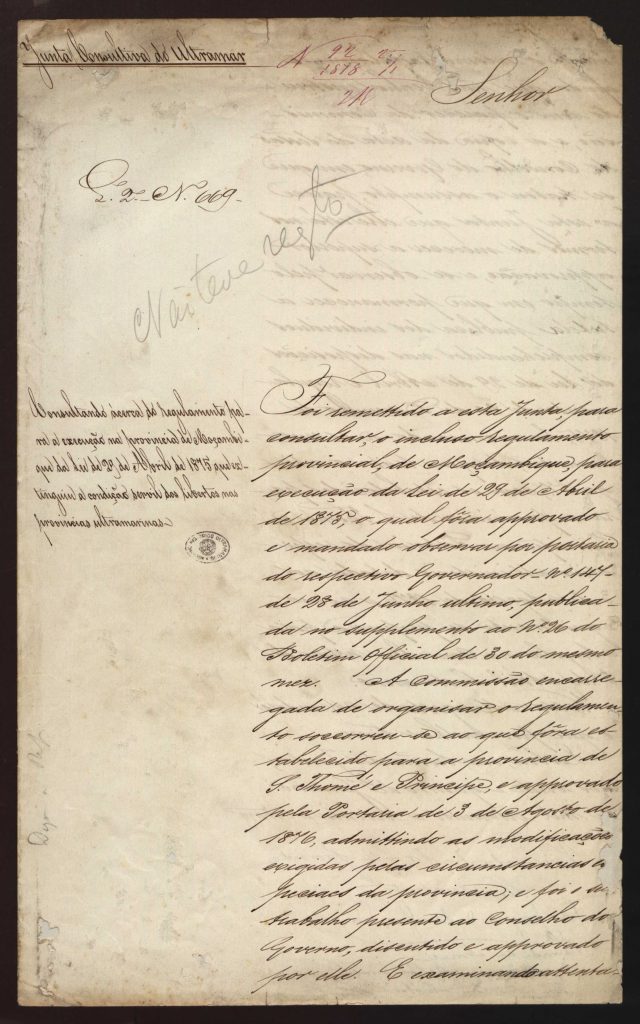 Junta Consultiva do Ultramar
N 92 25/1
1878
2ª
Senhor
L. 2. N. 669
Não teve regto
Consultando ácerca do regulamento pa-
ra a execução na provincia de Moçambi-
que da lei de 29 de Abril de 1875 que ex-
tinguiu a condição servil dos libertos nas
provincias ultramarinas
Foi remettido a esta Junta, para
consultar, o incluso regulamento
provincial, de Moçambique, para
execução da lei de 29 de Abril
de 1875, o qual fôra approvado
e mandado observar por portaria
do respectivo Governador Nº 147
de 28 de Junho ultimo, publica-
da no supplemento ao Nº 26 do
Boletim Official de 30 do mesmo
mez. A Commissão encarre-
gada de organisar o regulamen-
to soccorreu-se ao que fôra es-
tabelecido para a provincia de
S. Thomé e Principe, e approvado
pela Portaria de 3 de Agosto de
1876, admittindo as modificações
exigidas pelas circumstancias es-
peciaes da provincia; e foi o seu
trabalho presente ao Conselho do
Governo, discutido e approvado
por elle. E examinando attenta-